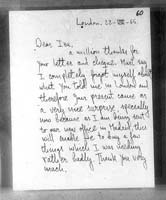 60
London, 22-VIII-66
Dear
a million thanks for
your letter and cheque. Must say
I completely forgot myself about
what you told me in London and
therefore your present came as
a very nice surprise specially
now because as I am being sent
to our new office in Madrid, this
will enable me to buy a few
things which I was needing
rather badly. Thank you very
much.